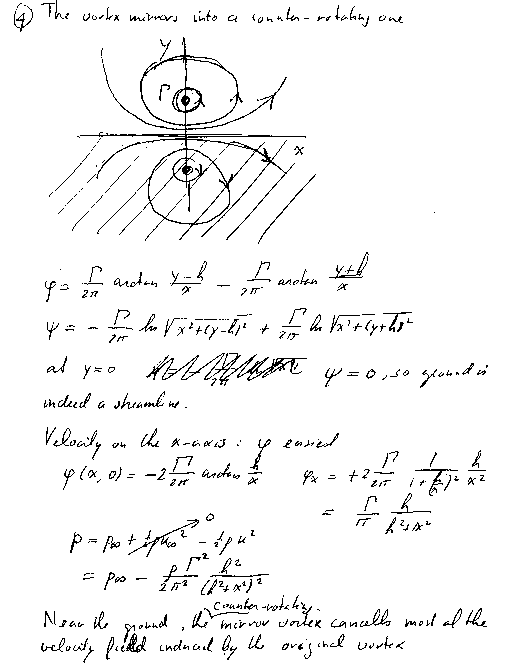 ④ The vortex mirrors into a counter-rotating one
y
Γ
x
φ = Γ/2π arctan (y-h)/x - Γ/2π arctan (y+h)/x
ψ = - Γ/2π ln √(x²+(y-h)²) + Γ/2π ln √(x²+(y+h)²)
at y=0 ψ = 0, so ground is
indeed a streamline.
Velocity on the x-axis : φ easiest
φ(x,0) = -2 Γ/2π arctan h/x φₓ = +2 Γ/2π 1/(1+(h/x)²) h/x²
= Γ/π h/(h²+x²)
p = p∞ + ½ρu∞² → 0 - ½ρu²
= p∞ - ρΓ²/2π² h²/(h²+x²)²
Near the ground, the counter-rotating mirror vortex cancells most of the
velocity field induced by the original vortex